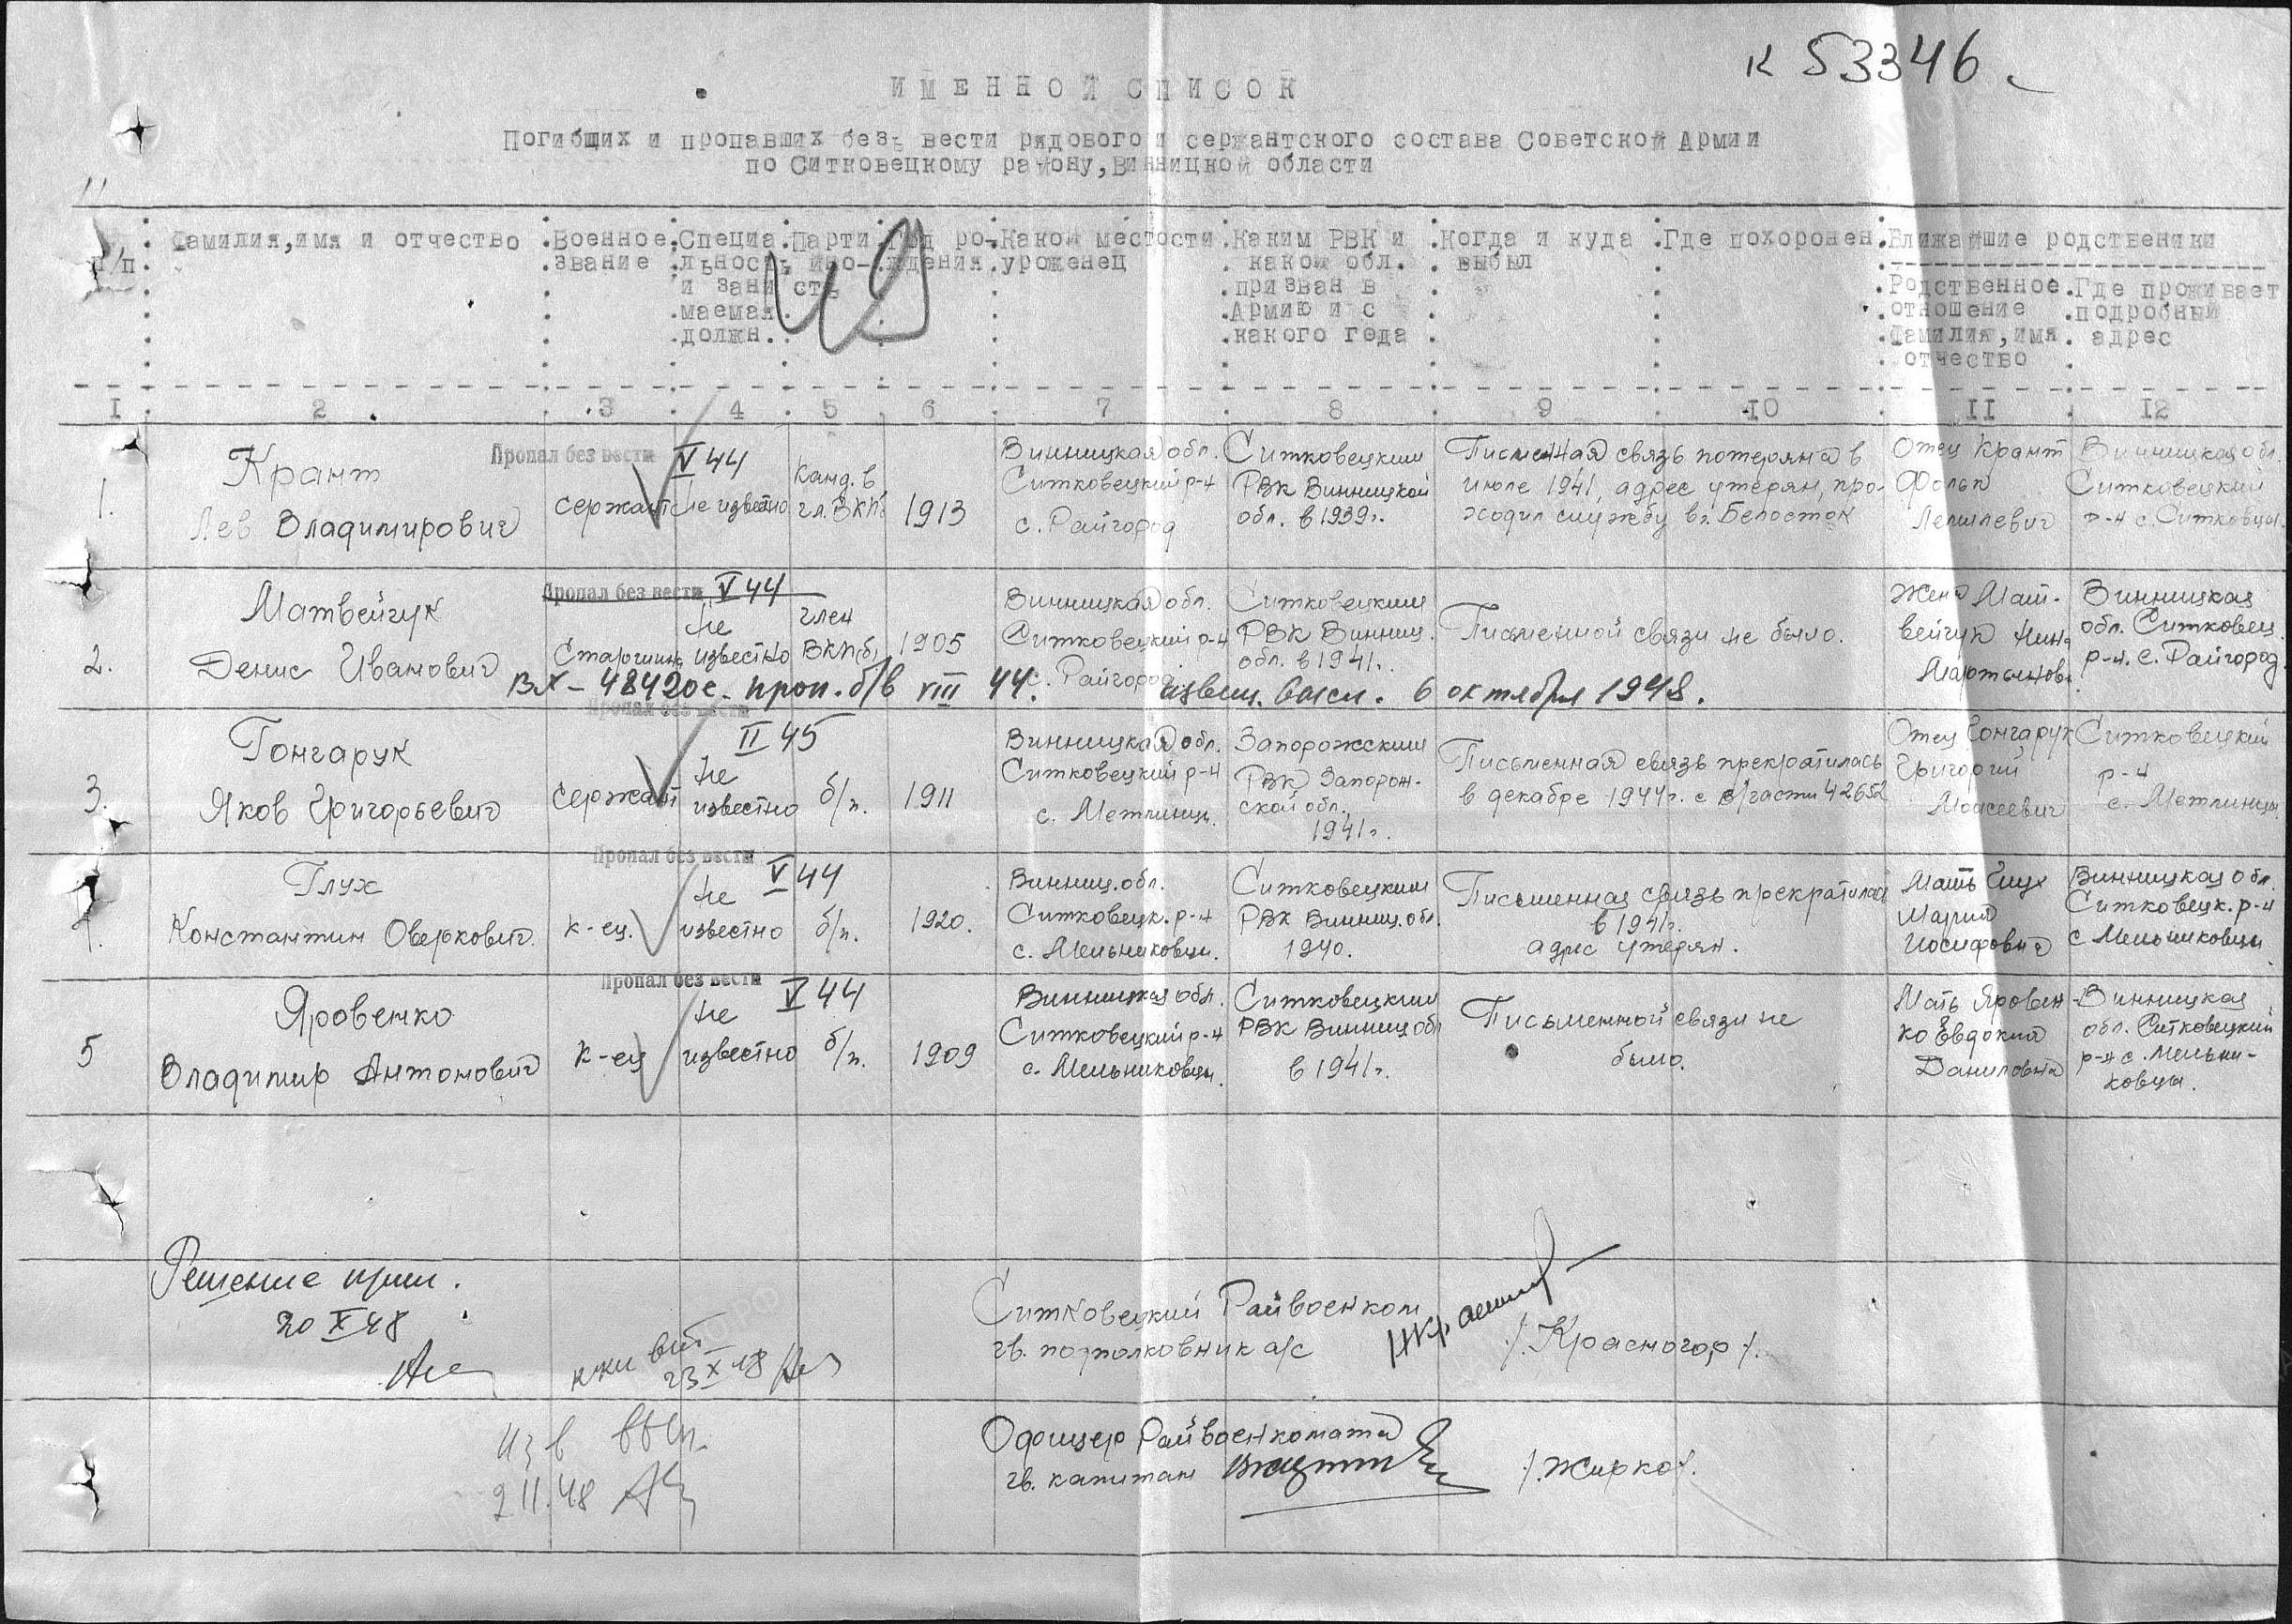 к 53346
ИМЕННОЙ СПИСОК
Погибщих и пропавших без вести рядового и сержантского состава Советской Армии
по Ситковецкому району, Винницкой области
п/п
Фамилия, имя и отчество
Военное
звание
Специа
льность
и зани
маемая
должн.
Парти
йно-
сть
Год ро-
ждения
Какой местости
уроженец
Каким РВК и
какой обл.
призван в
Армию и с
какого года
Когда и куда
выбыл
Где похоронен
Ближайшие родственики
Родственное
отношение
Фамилия, имя
отчество
Где проживает
подробный
адрес
I 2 3 4 5 6 7 8 9 10 11 12
1.
Крант
Лев Владимирович
Пропал без вести V 44
сержант
не известно
Канд. в
чл. ВКП
1913
Винницкая обл.
Ситковецкий р-н
с. Райгород
Ситковецким
РВК Винницкой
обл. в 1939 г.
Писменная связь потеряна в
июле 1941, адрес утерян, про-
ходил службу в г. Белосток
Отец Крант
Винницкая обл.
Ситковецкий
р-н с. Ситковцы.
2.
Матвейчук
Денис Иванович
Пропал без вести V 44
Старшина
не
известно
член
ВКП(б)
1905
Винницкая обл.
Ситковецкий р-н
с. Райгород
Ситковецким
РВК Винниц.
обл. в 1941 г.
Письменной связи не было.
Жена Мат-
вейчук Нина
Мартыновна
Винницкая
обл. Ситковец.
р-н. с. Райгород
ВХ-48420с- проп. б/в VIII 44. извещ. высл. 6 октября 1948.
3.
Гончарук
Яков Григорьевич
Пропал без вести
II 45
сержант
не
известно
б/п.
1911
Винницкая обл.
Ситковецкий р-н
с. Метлинцы.
Запорожским
РВК Запорож-
ской обл.
1941 г.
Письменная связь прекратилась
в декабре 1944 г. с в/части 42652
Отец Гончарук
Григорий
Моисеевич
Ситковецкий
р-н
с. Метлинцы.
4.
Глух
Константин Оверкович.
Пропал без вести
V 44
к-ец.
не
известно
б/п.
1920.
Винниц. обл.
Ситковецк. р-н
с. Мельниковцы.
Ситковецким
РВК Винниц. обл.
1940.
Письменная связь прекратилась
в 1941 г.
адрес утерян.
Мать Глух
Мария
Иосифовна
Винницкая обл.
Ситковецк. р-н
с Мельниковцы
5
Яровенко
Владимир Антонович
Пропал без вести
V 44
к-ец
не
известно
б/п.
1909
Винницкая обл.
Ситковецкий р-н
с. Мельниковцы.
Ситковецким
РВК Винниц обл
в 1941 г.
Письменной связи не
было.
Мать Яровен-
ко Евдокия
Даниловна
Винницкая
обл. Ситковецкий
р-н с. Мельни-
ковцы.
Решение прин.
20 X 48
23 X 48
Изв вып.
2 11.48
Ситковецкий Райвоенком
гв. подполковник а/с
/. Красногор /.
Офицер Райвоенкомата
гв. капитан
/. Жирков /.